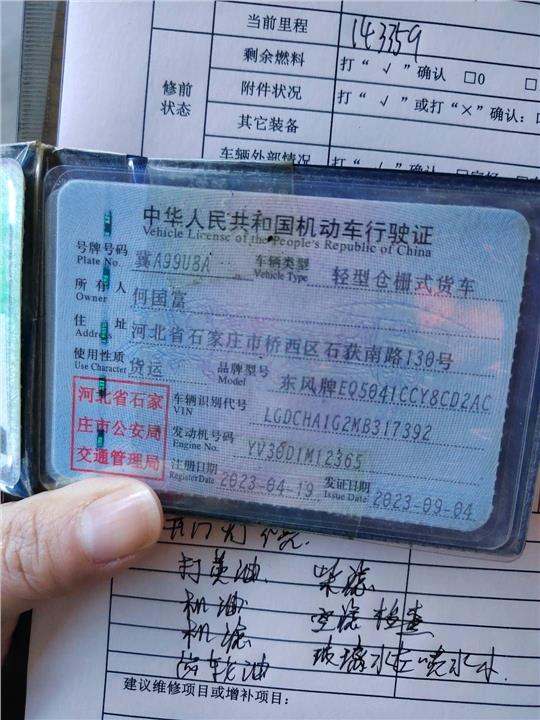 当前里程 143359
剩余燃料 打“√”确认 □0
修前状态
附件状况 打“√”或打“×”确认：
其它装备
车辆外部情况 打“√”确认
中华人民共和国机动车行驶证
Vehicle License of the People's Republic of China
号牌号码 冀A99U8A 车辆类型 轻型仓栅式货车
Plate No. Vehicle Type
所有人 何国富
Owner
住址 河北省石家庄市桥西区石获南路130号
Address
使用性质 货运 品牌型号 东风牌EQ5041CCY8CD2AC
Use Character Model
河北省石家
庄市公安局
交通管理局
车辆识别代号 LGDCHA1G2MB317392
VIN
发动机号码 YV30D1M12365
Engine No.
注册日期 2023-04-19 发证日期 2023-09-04
Register Date Issue Date
打黄油
机油 空滤 检查
机滤 玻璃水 喷水
齿轮油
建议维修项目或增补项目：